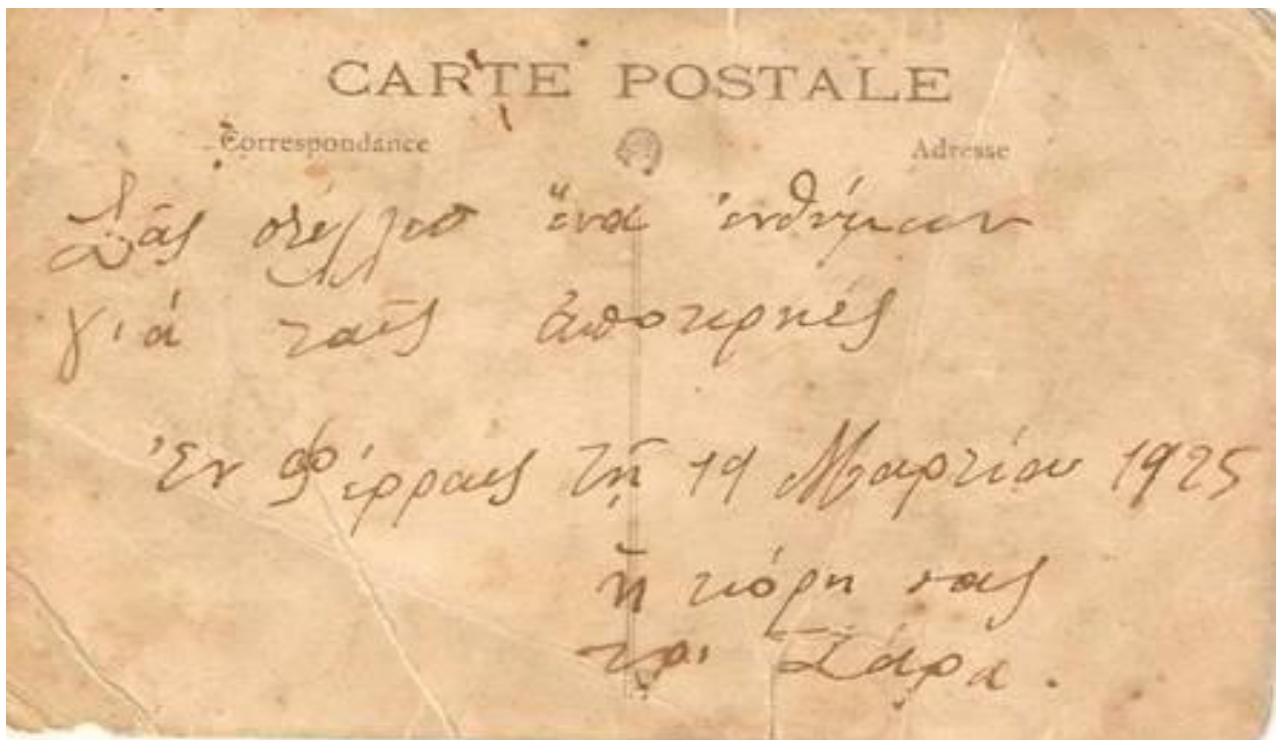 CARTE POSTALE
Correspondance Adresse
Σᾶς στέλλω ἕνα ἐνθύμιον
γιά ταῖς ἀποκρηές
Ἐν Φέρραις τῇ 19 Μαρτίου 1925
ἡ κόρη σας
Σάρα.